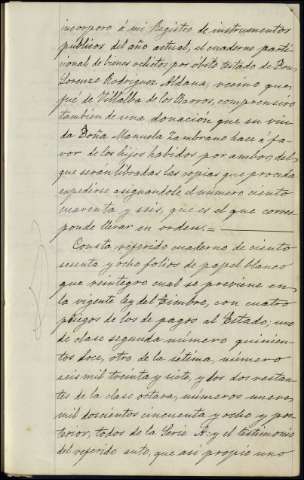 incorporo á mi Registro de instrumentos
publicos del año actual, el cuaderno parti-
cional de bienes relictos por óbito testado de Don
Lorenzo Rodriguez Aldana, vecino que
fué de Villalba de los Barros, comprensivo
tambien de una donación que su viu-
da Doña Manuela Zambrano hace á fa-
vor de los hijos habidos por ambos, del
que serán libradas las copias que proceda
expedirse asignandole el número ciento
cuarenta y seis, que es el que corres-
ponde llevar en orden.=
Consta referido cuaderno de ciento
sesenta y ocho folios de papel blanco
que reintegro cual se previene en
la vigente ley del Timbre, con cuatro
pliegos de los de pagos al Estado; uno
de clase segunda número quinien-
tos doce, otro de la sétima, número
seis mil treinta y siete, y dos dos restan-
tes de la clase octava, números nueve
mil doscientos cincuenta y ocho y pos-
terior, todos de la Serie A. y el testimonio
del referido auto, que asi propio uno